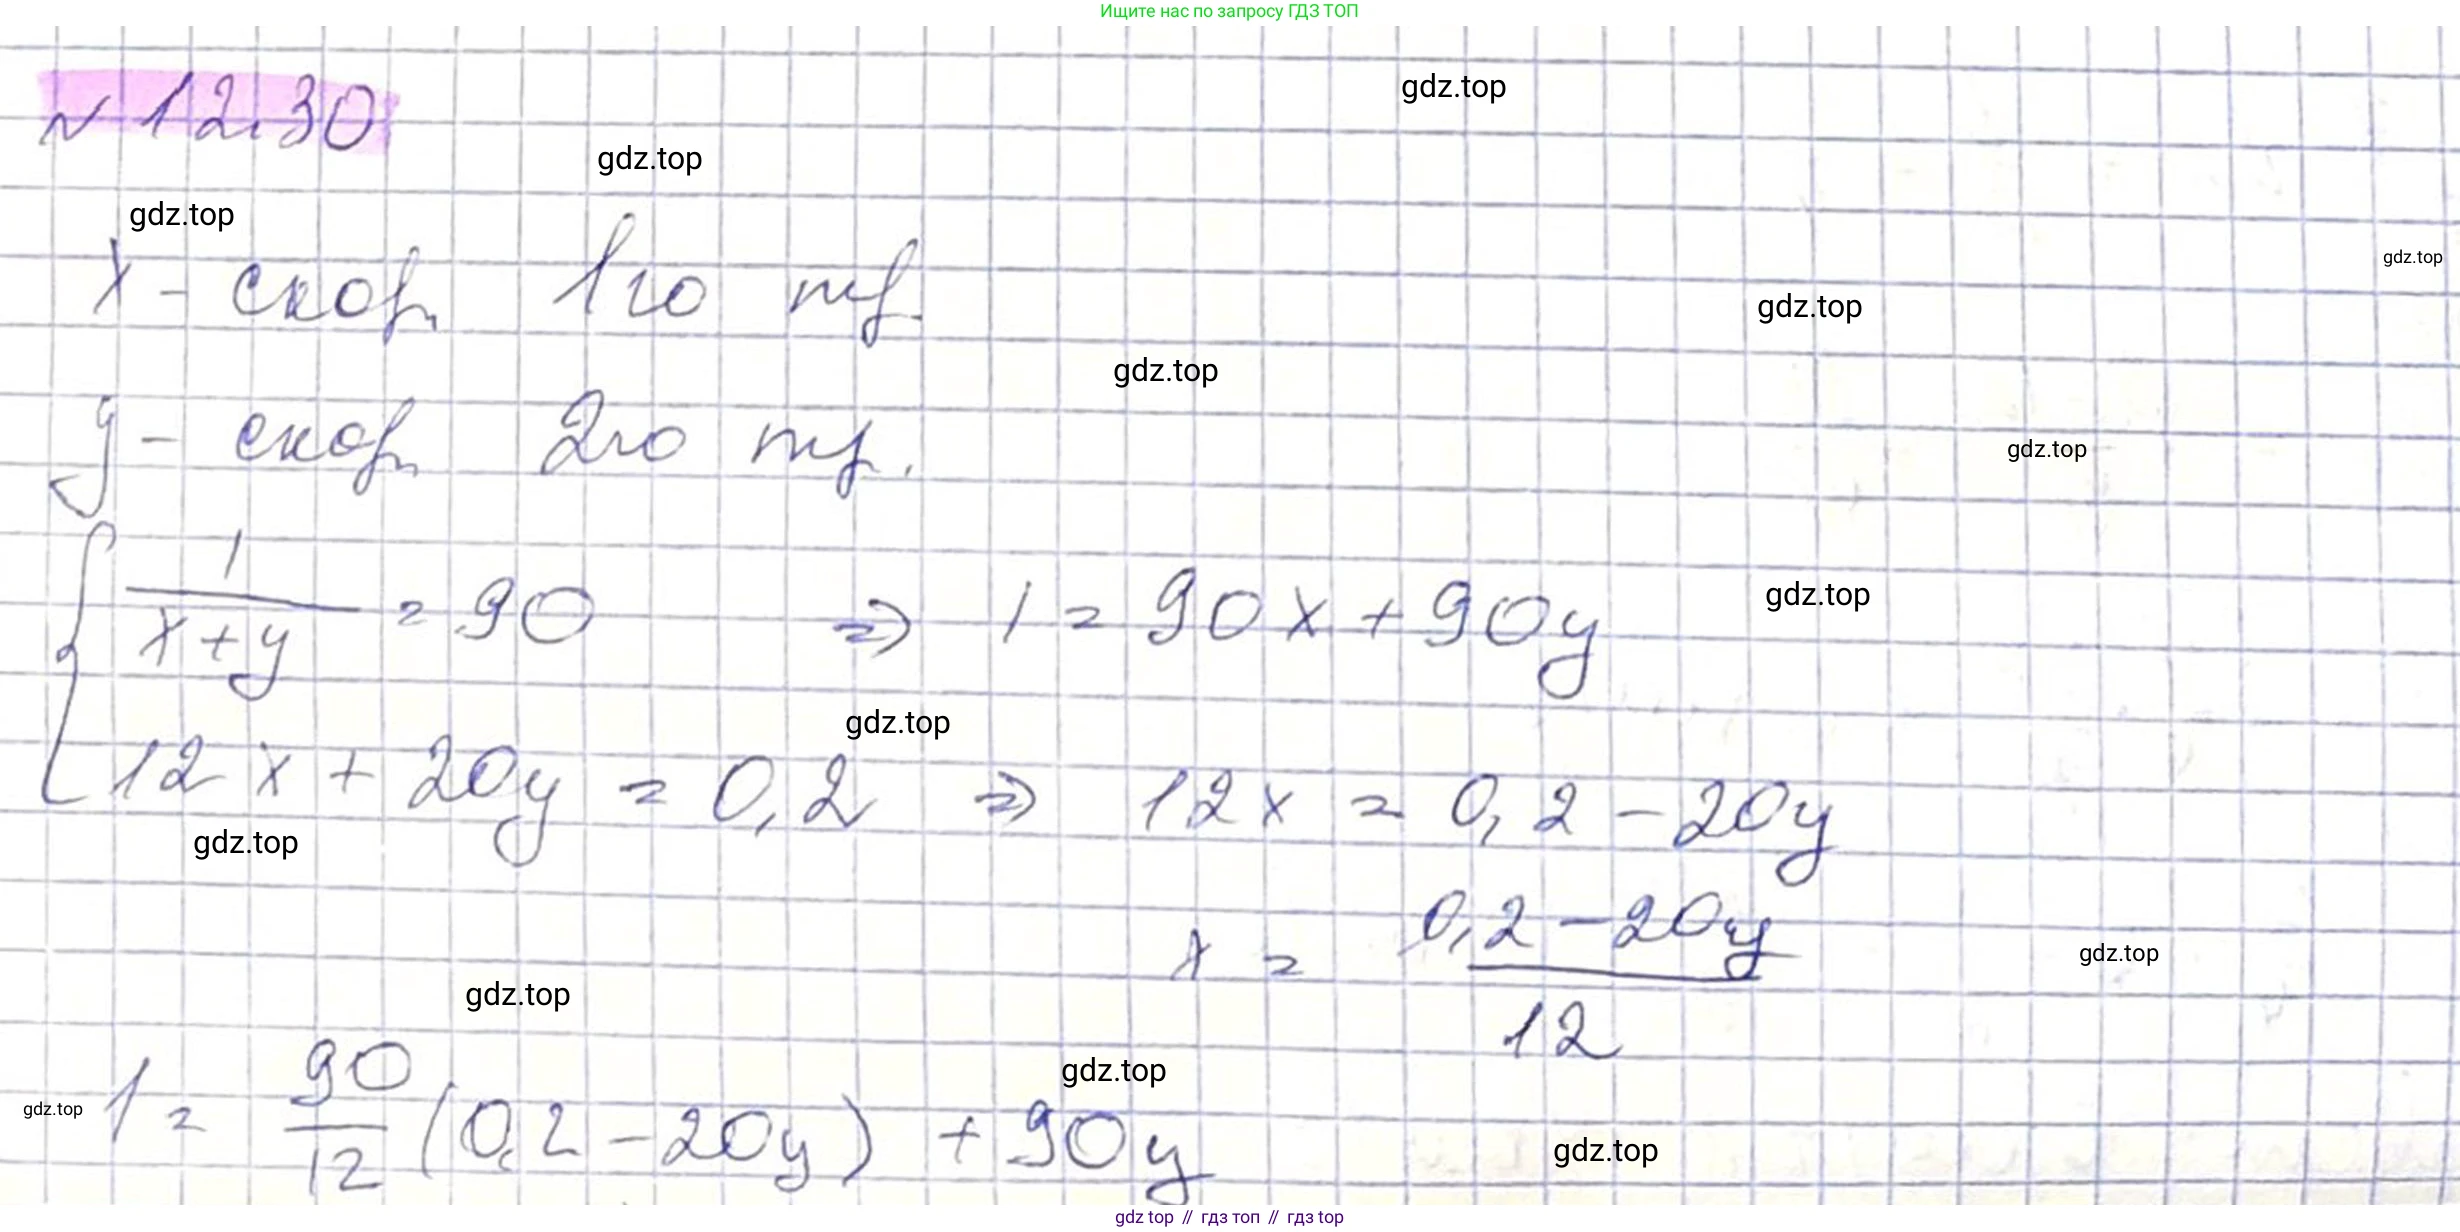 Ищите нас по запросу ГДЗ ТОП
gdz.top
№ 12.30
gdz.top
gdz.top
gdz.top
x - скор. 1го тр.
gdz.top
gdz.top
y - скор. 2го тр.
gdz.top
{ 1/(x+y) = 90 ⇒ 1 = 90x + 90y
gdz.top
gdz.top
12x + 20y = 0,2 ⇒ 12x = 0,2 - 20y
gdz.top
x = (0,2 - 20y)/12
gdz.top
gdz.top
gdz.top
gdz.top
1 = 90/12 (0,2 - 20y) + 90y
gdz.top
gdz top // гдз топ // гдз top